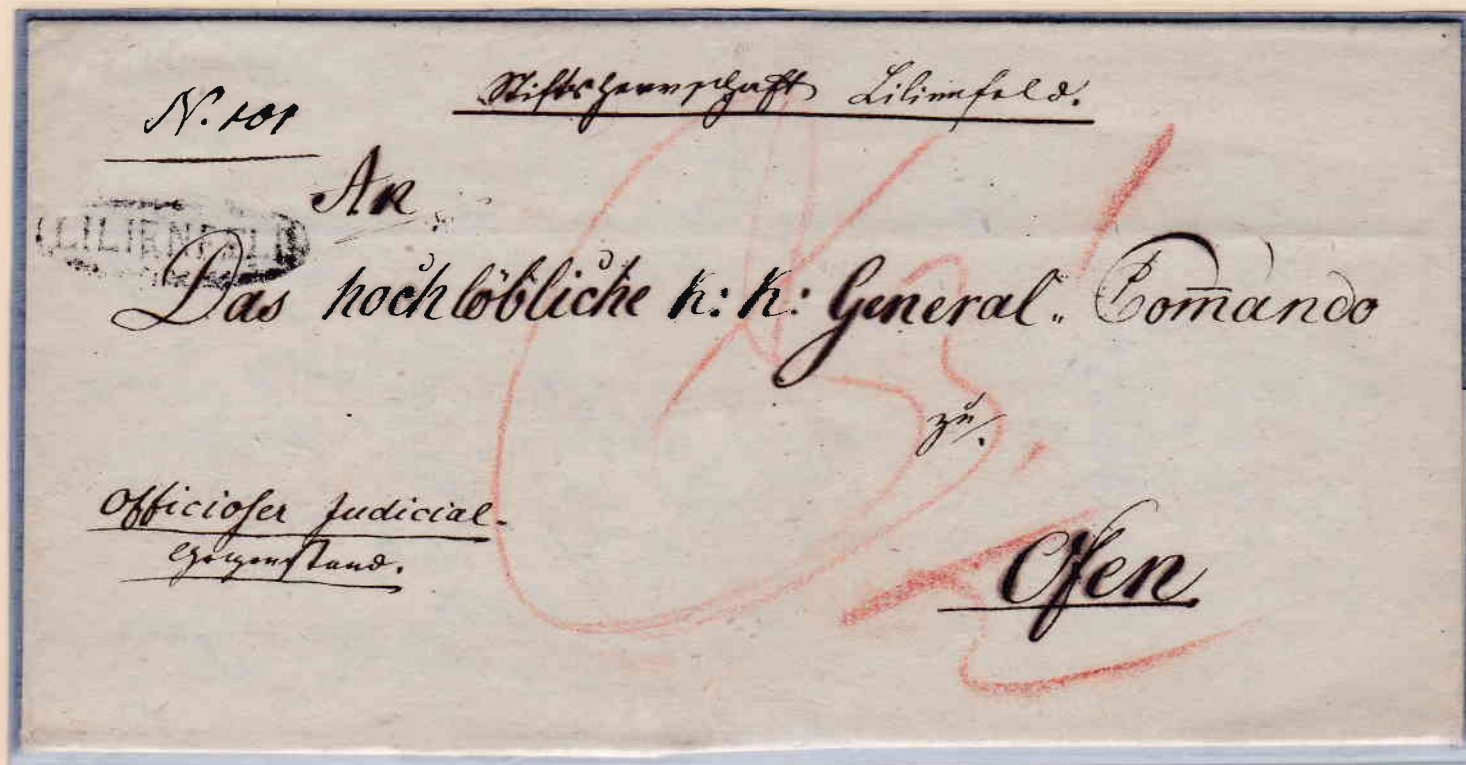 Stiftsherrschaft Lilienfeld.
N. 101
An
LILIENFELD
Das hochlöbliche k: k: General„ Com̄ando
zu
Ofen
Officioser Judicial-
Gegenstand.